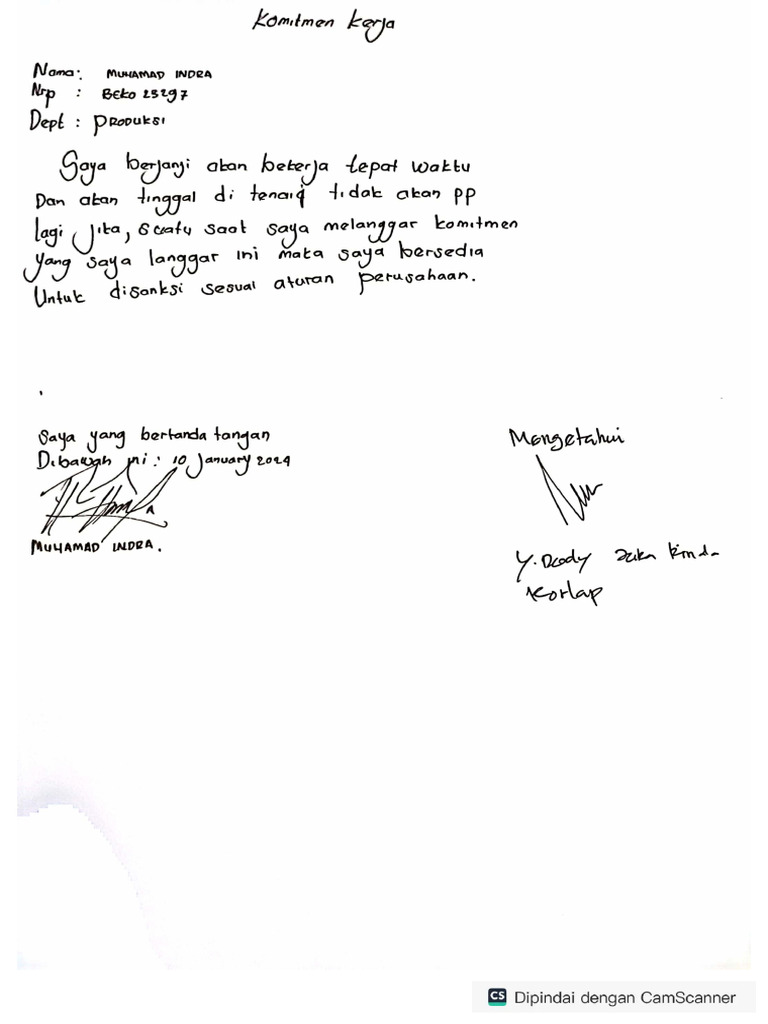 Komitmen Kerja
Nama: MUHAMAD INDRA
Nrp : BEKO 25297
Dept : PRODUKSI
Saya berjanji akan bekerja tepat waktu
Dan akan tinggal di tidak akan PP
lagi Jika, Suatu saat saya melanggar komitmen
yang saya langgar ini maka saya bersedia
Untuk disanksi sesuai aturan perusahaan.
Saya yang bertanda tangan
Dibawah ini : 10 January 2024
MUHAMAD INDRA.
Mengetahui
Korlap
CS Dipindai dengan CamScanner